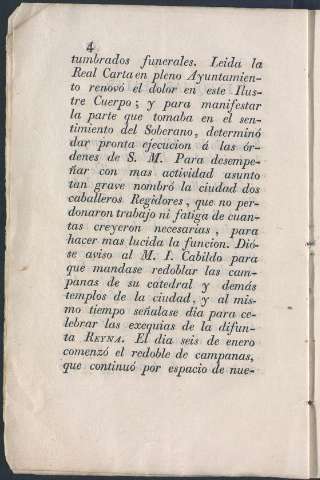 4
tumbrados funerales. Leida la
Real Carta en pleno Ayuntamien-
to renovó el dolor en este Ilus-
tre Cuerpo; y para manifestar
la parte que tomaba en el sen-
timiento del Soberano, determinó
dar pronta ejecucion á las ór-
denes de S. M. Para desempe-
ñar con mas actividad asunto
tan grave nombró la ciudad dos
caballeros Regidores, que no per-
donaron trabajo ni fatiga de cuan-
tas creyeron necesarias, para
hacer mas lucida la funcion. Dió-
se aviso al M. I. Cabildo para
que mandase redoblar las cam-
panas de su catedral y demás
templos de la ciudad, y al mis-
mo tiempo señalase dia para ce-
lebrar las exequias de la difun-
ta REYNA. El dia seis de enero
comenzó el redoble de campanas,
que continuó por espacio de nue-